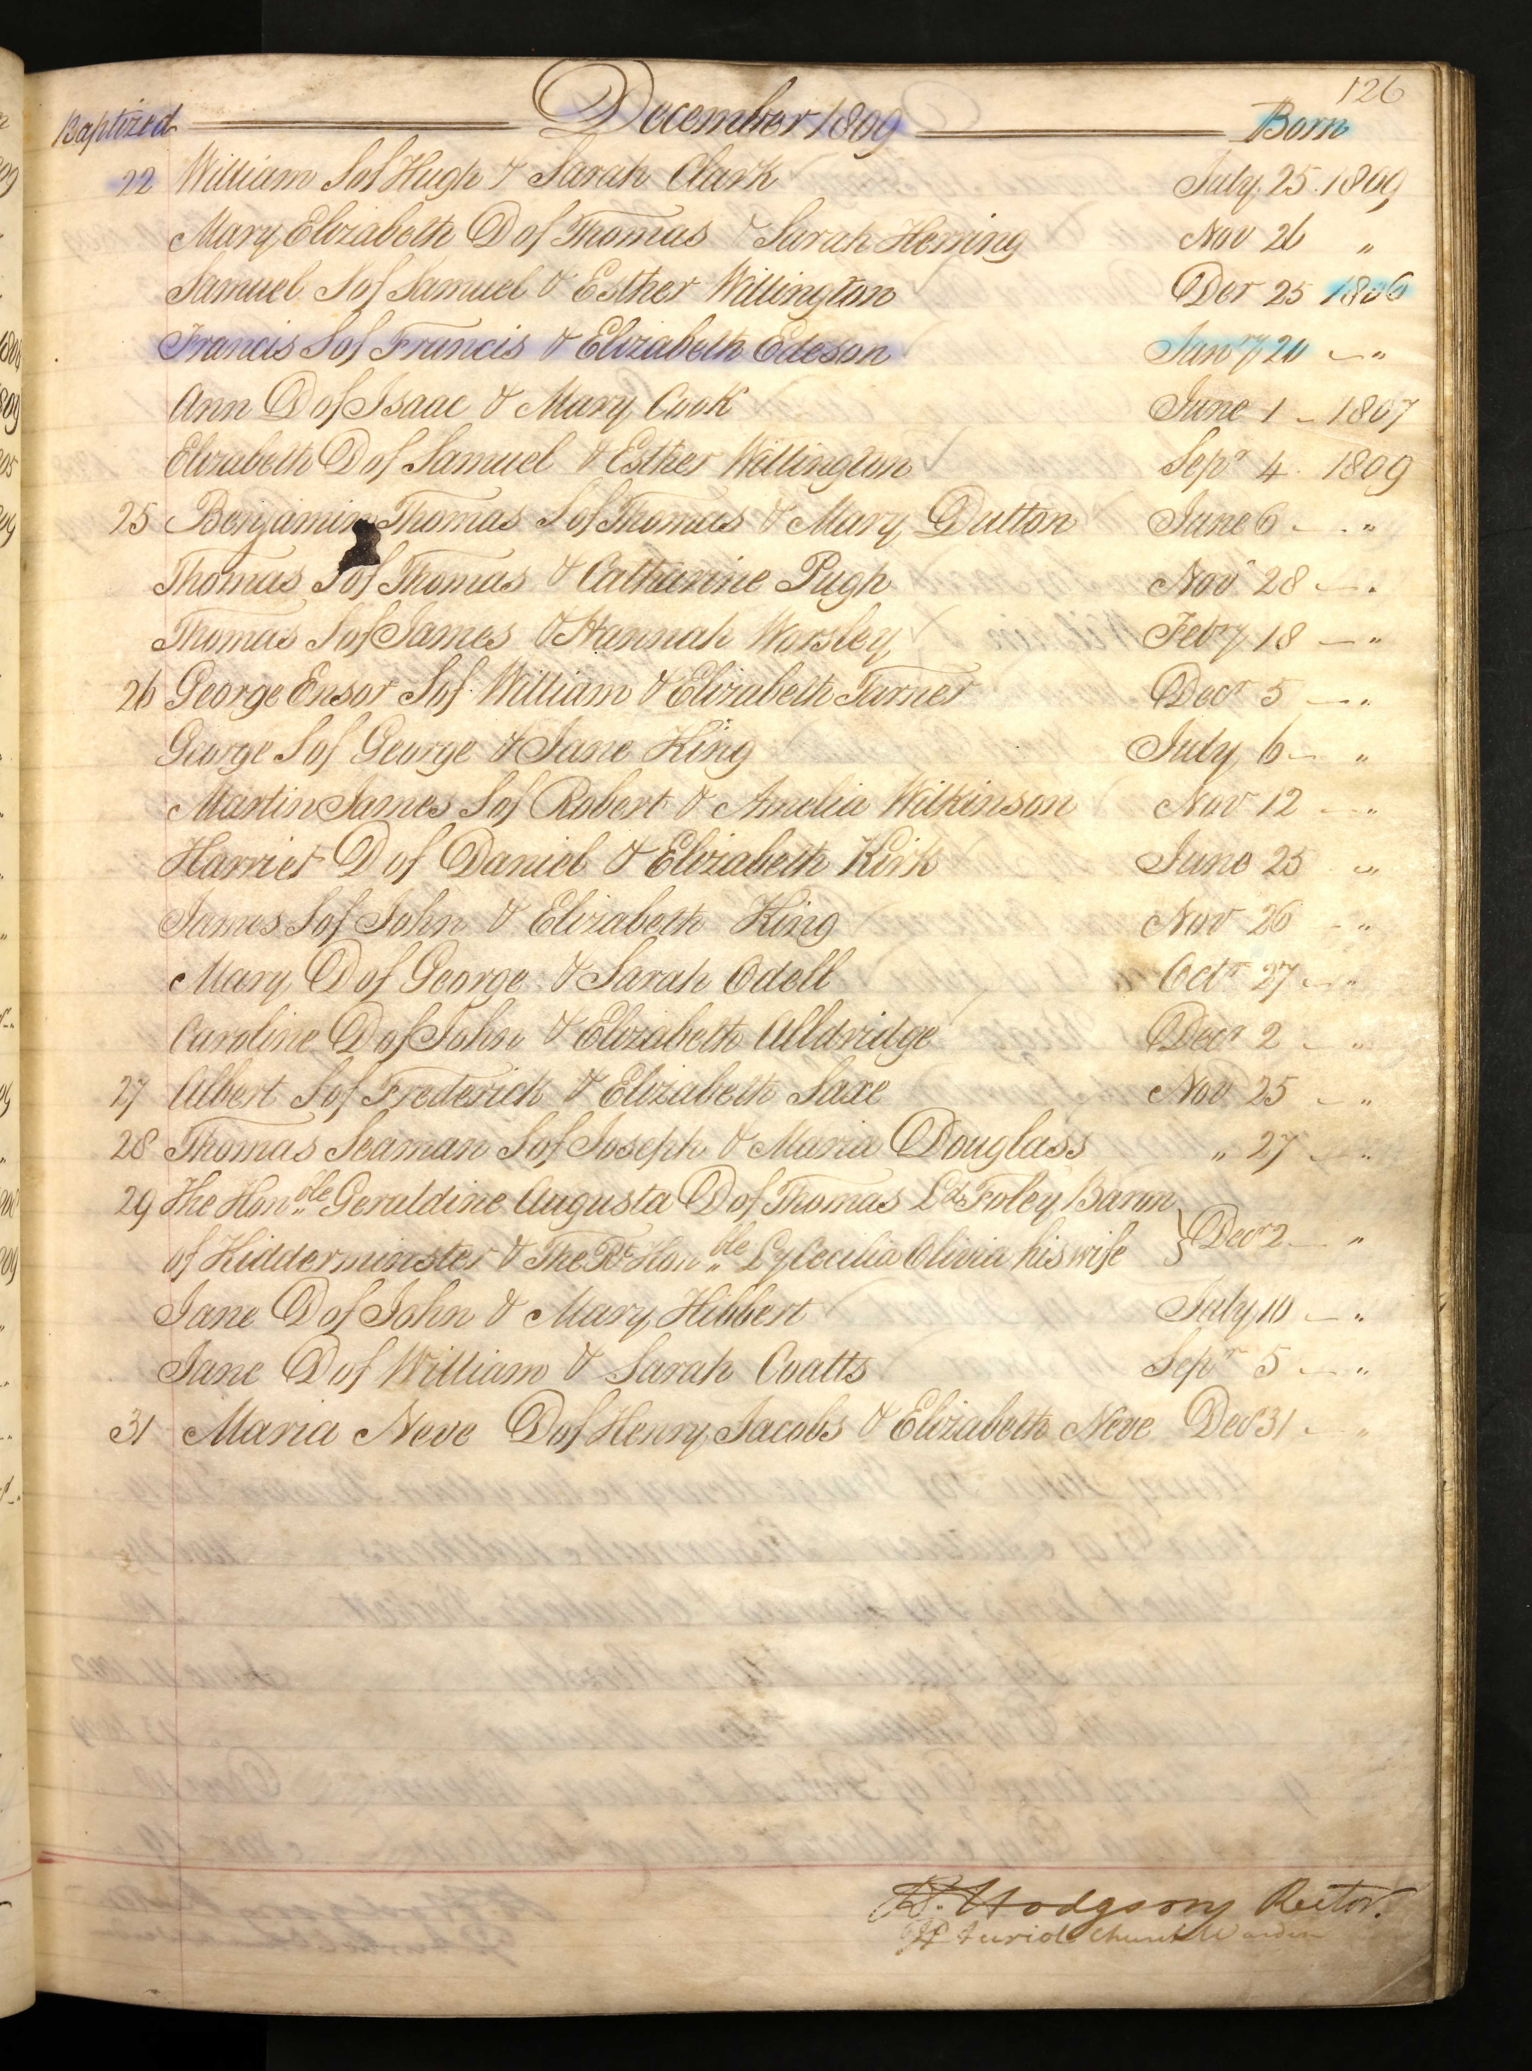 126
Baptized December 1809 Born
22 William S of Hugh & Sarah Clark July 25 1809
Mary Elizabeth D of Thomas & Sarah Herring Nov 26 "
Samuel S of Samuel & Esther Willington Decr 25 1806
Francis S of Francis & Elizabeth Edeson Jany 20 — "
Ann D of Isaac & Mary Cook June 1 - 1807
Elizabeth D of Samuel & Esther Willington Sepr 4 1809
25 Benjamin Thomas S of Thomas & Mary Dutton June 6 — "
Thomas S of Thomas & Catharine Pugh Novr 28 — "
Thomas S of James & Hannah Worsley Feby 18 — "
26 George Ensor S of William & Elizabeth Turner Decr 5 — "
George S of George & Jane King July 6 — "
Martin James S of Robert & Amelia Wilkinson Nov 12 — "
Harriet D of Daniel & Elizabeth Kirk June 25 — "
James S of John & Elizabeth King Nov 26 - "
Mary D of George & Sarah Odell Octr 27 — "
Caroline D of John & Elizabeth Alldridge Decr 2 — "
27 Albert S of Frederick & Elizabeth Saxe Nov 25 — "
28 Thomas Seaman S of Joseph & Maria Douglass " 27 — "
29 The Honble Geraldine Augusta D of Thomas Ld Foley Baron
of Kidderminster & The Rt Honble Ly Cecilia Olivia his wife } Decr 2 — "
Jane D of John & Mary Hibbert July 10 — "
Jane D of William & Sarah Coatts Sepr 5 — "
31 Maria Neve D of Henry Jacobs & Elizabeth Neve Decr 31 — "
R. Hodgson Rector.
Church Warden